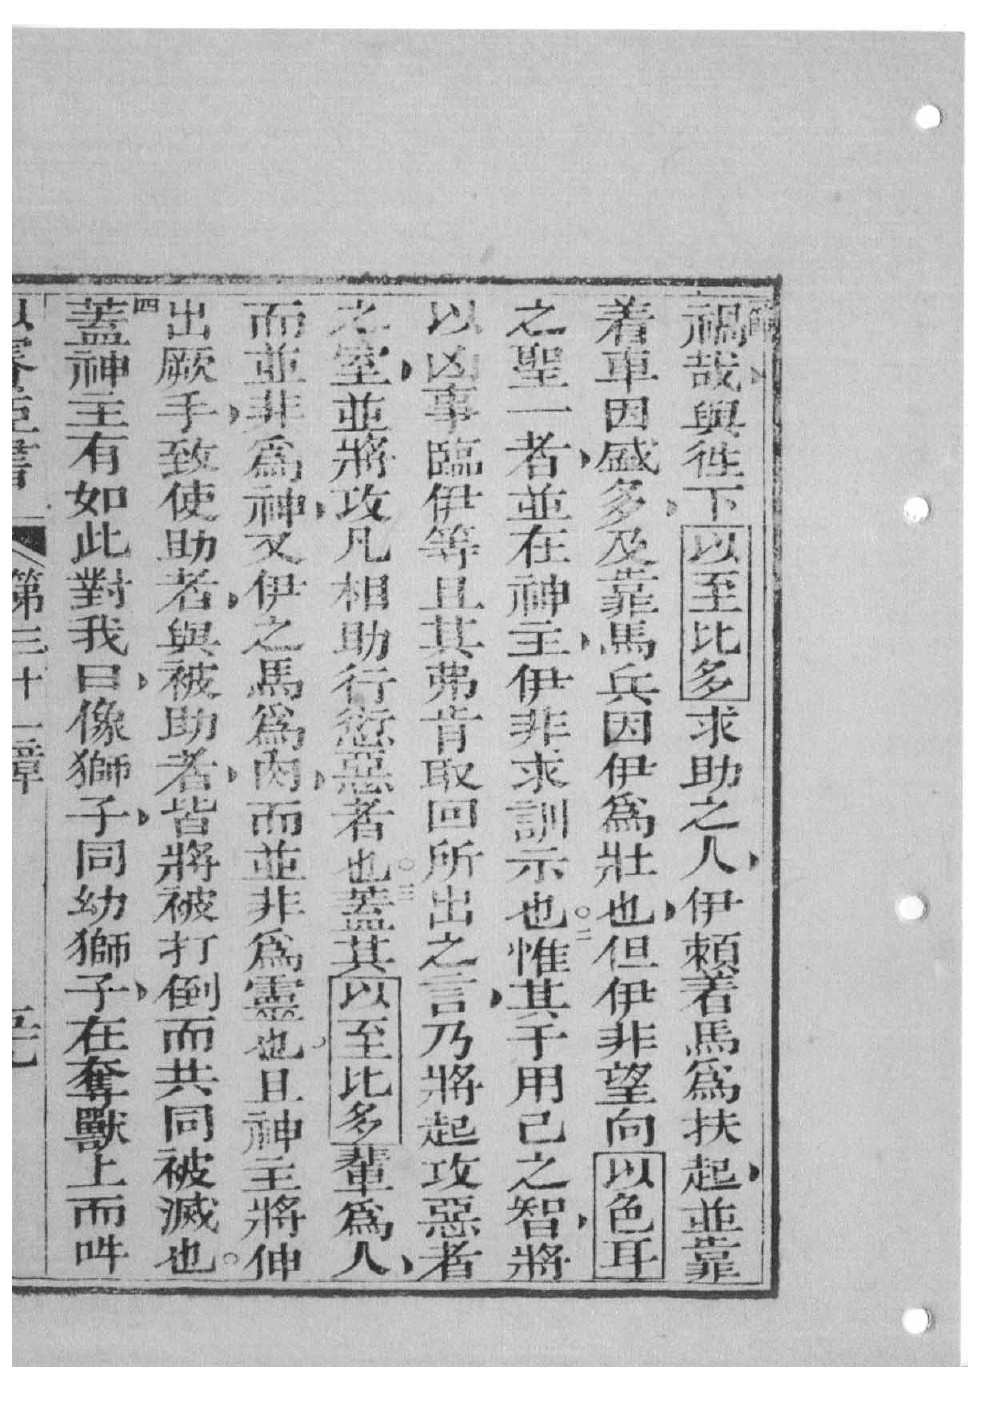 禍哉與徃下以至比多求助之人伊頼着馬爲扶起並靠
着車因盛多及靠馬兵因伊爲壯也但伊非望向以色耳
之聖一者並在神主伊非求訓示也二惟其于用己之智將
以凶事臨伊等且其弗肯取回所出之言乃將起攻惡者
之室並將攻凡相助行愆惡者也三蓋其以至比多輩爲人
而並非爲神又伊之馬爲肉而並非爲靈也且神主將伸
出厥手致使助者與被助者皆將被打倒而共同被滅也
四蓋神主有如此對我曰像獅子同幼獅子在奪獸上而吽
第三十一章